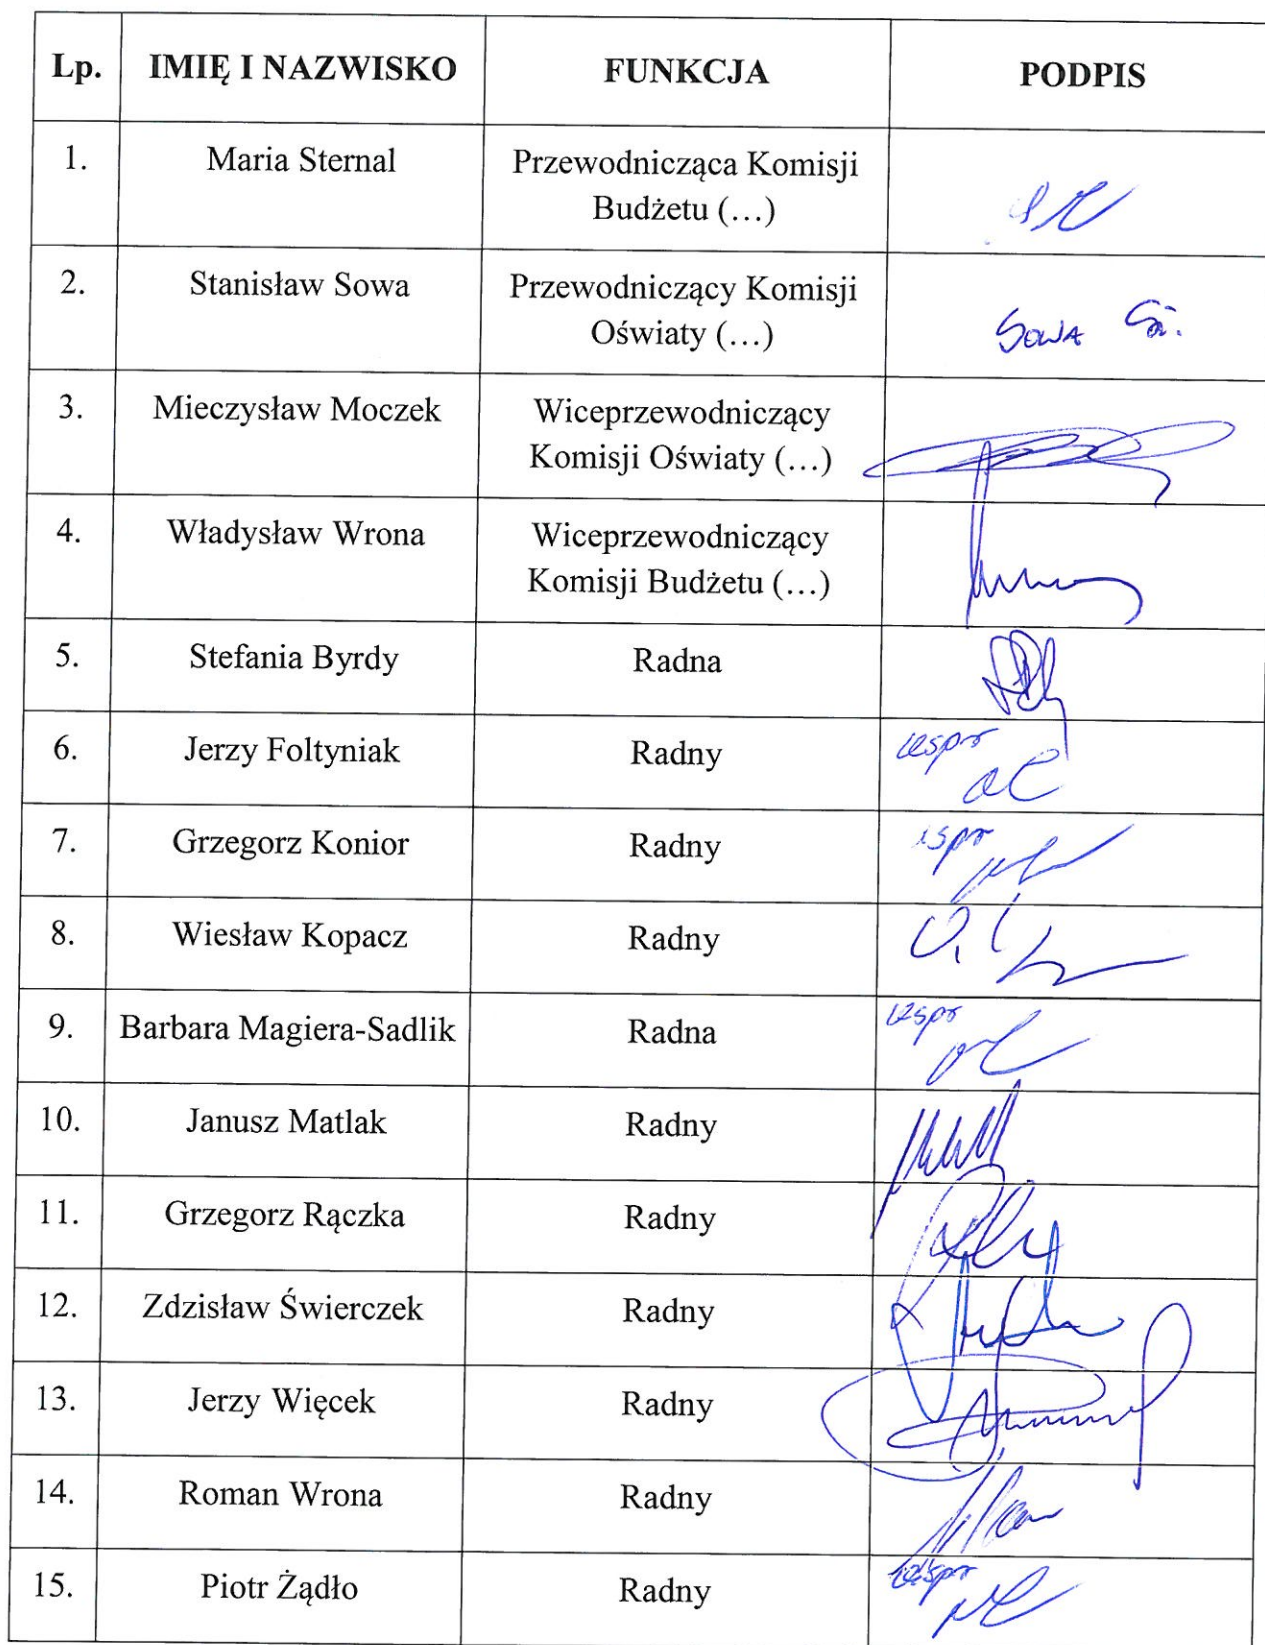 Lp. IMIĘ I NAZWISKO FUNKCJA PODPIS
1. Maria Sternal Przewodnicząca Komisji
Budżetu (…)
2. Stanisław Sowa Przewodniczący Komisji
Oświaty (…) Sowa St.
3. Mieczysław Moczek Wiceprzewodniczący
Komisji Oświaty (…)
4. Władysław Wrona Wiceprzewodniczący
Komisji Budżetu (…)
5. Stefania Byrdy Radna
6. Jerzy Foltyniak Radny
7. Grzegorz Konior Radny
8. Wiesław Kopacz Radny
9. Barbara Magiera-Sadlik Radna
10. Janusz Matlak Radny
11. Grzegorz Rączka Radny
12. Zdzisław Świerczek Radny
13. Jerzy Więcek Radny
14. Roman Wrona Radny
15. Piotr Żądło Radny